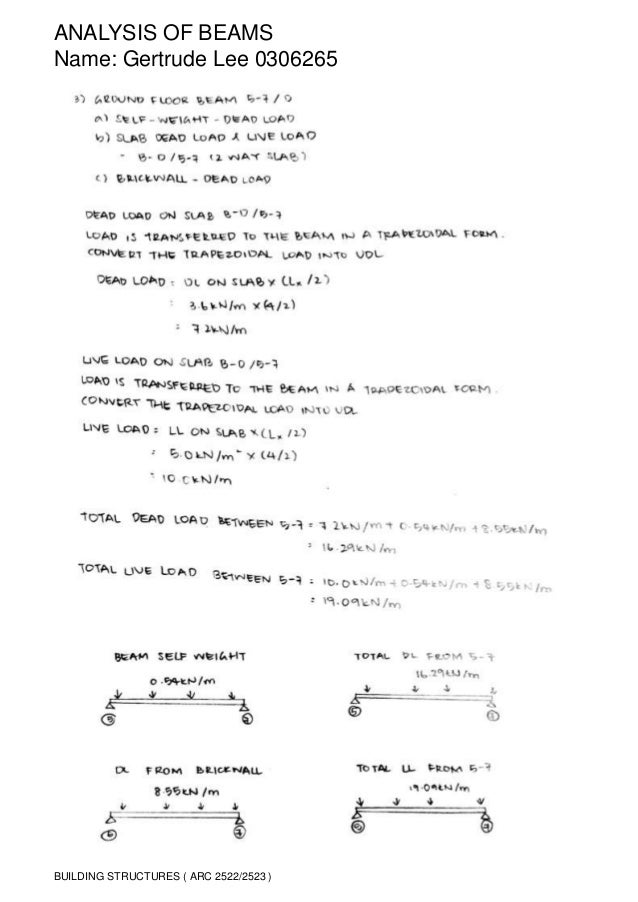 ANALYSIS OF BEAMS
Name: Gertrude Lee 0306265
3) GROUND FLOOR BEAM 5-7/D
a) SELF-WEIGHT - DEAD LOAD
b) SLAB DEAD LOAD & LIVE LOAD
- B-D/5-7 (2 WAY SLAB)
c) BRICKWALL - DEAD LOAD
DEAD LOAD ON SLAB B-D/5-7
LOAD IS TRANSFERRED TO THE BEAM IN A TRAPEZOIDAL FORM.
CONVERT THE TRAPEZOIDAL LOAD INTO UDL
DEAD LOAD : DL ON SLAB x (Lx/2)
: 3.6kN/m x (4/2)
: 7.2kN/m
LIVE LOAD ON SLAB B-D/5-7
LOAD IS TRANSFERRED TO THE BEAM IN A TRAPEZOIDAL FORM.
CONVERT THE TRAPEZOIDAL LOAD INTO UDL
LIVE LOAD = LL ON SLAB x (Lx/2)
: 5.0kN/m² x (4/2)
: 10.0kN/m
TOTAL DEAD LOAD BETWEEN 5-7 = 7.2kN/m + 0.54kN/m + 8.55kN/m
= 16.29kN/m
TOTAL LIVE LOAD BETWEEN 5-7 = 10.0kN/m + 0.54kN/m + 8.55kN/m
= 19.09kN/m
BEAM SELF WEIGHT
0.54kN/m
TOTAL DL FROM 5-7
16.29kN/m
5
DL FROM BRICKWALL
8.55kN/m
7
TOTAL LL FROM 5-7
19.09kN/m
7
BUILDING STRUCTURES ( ARC 2522/2523 )